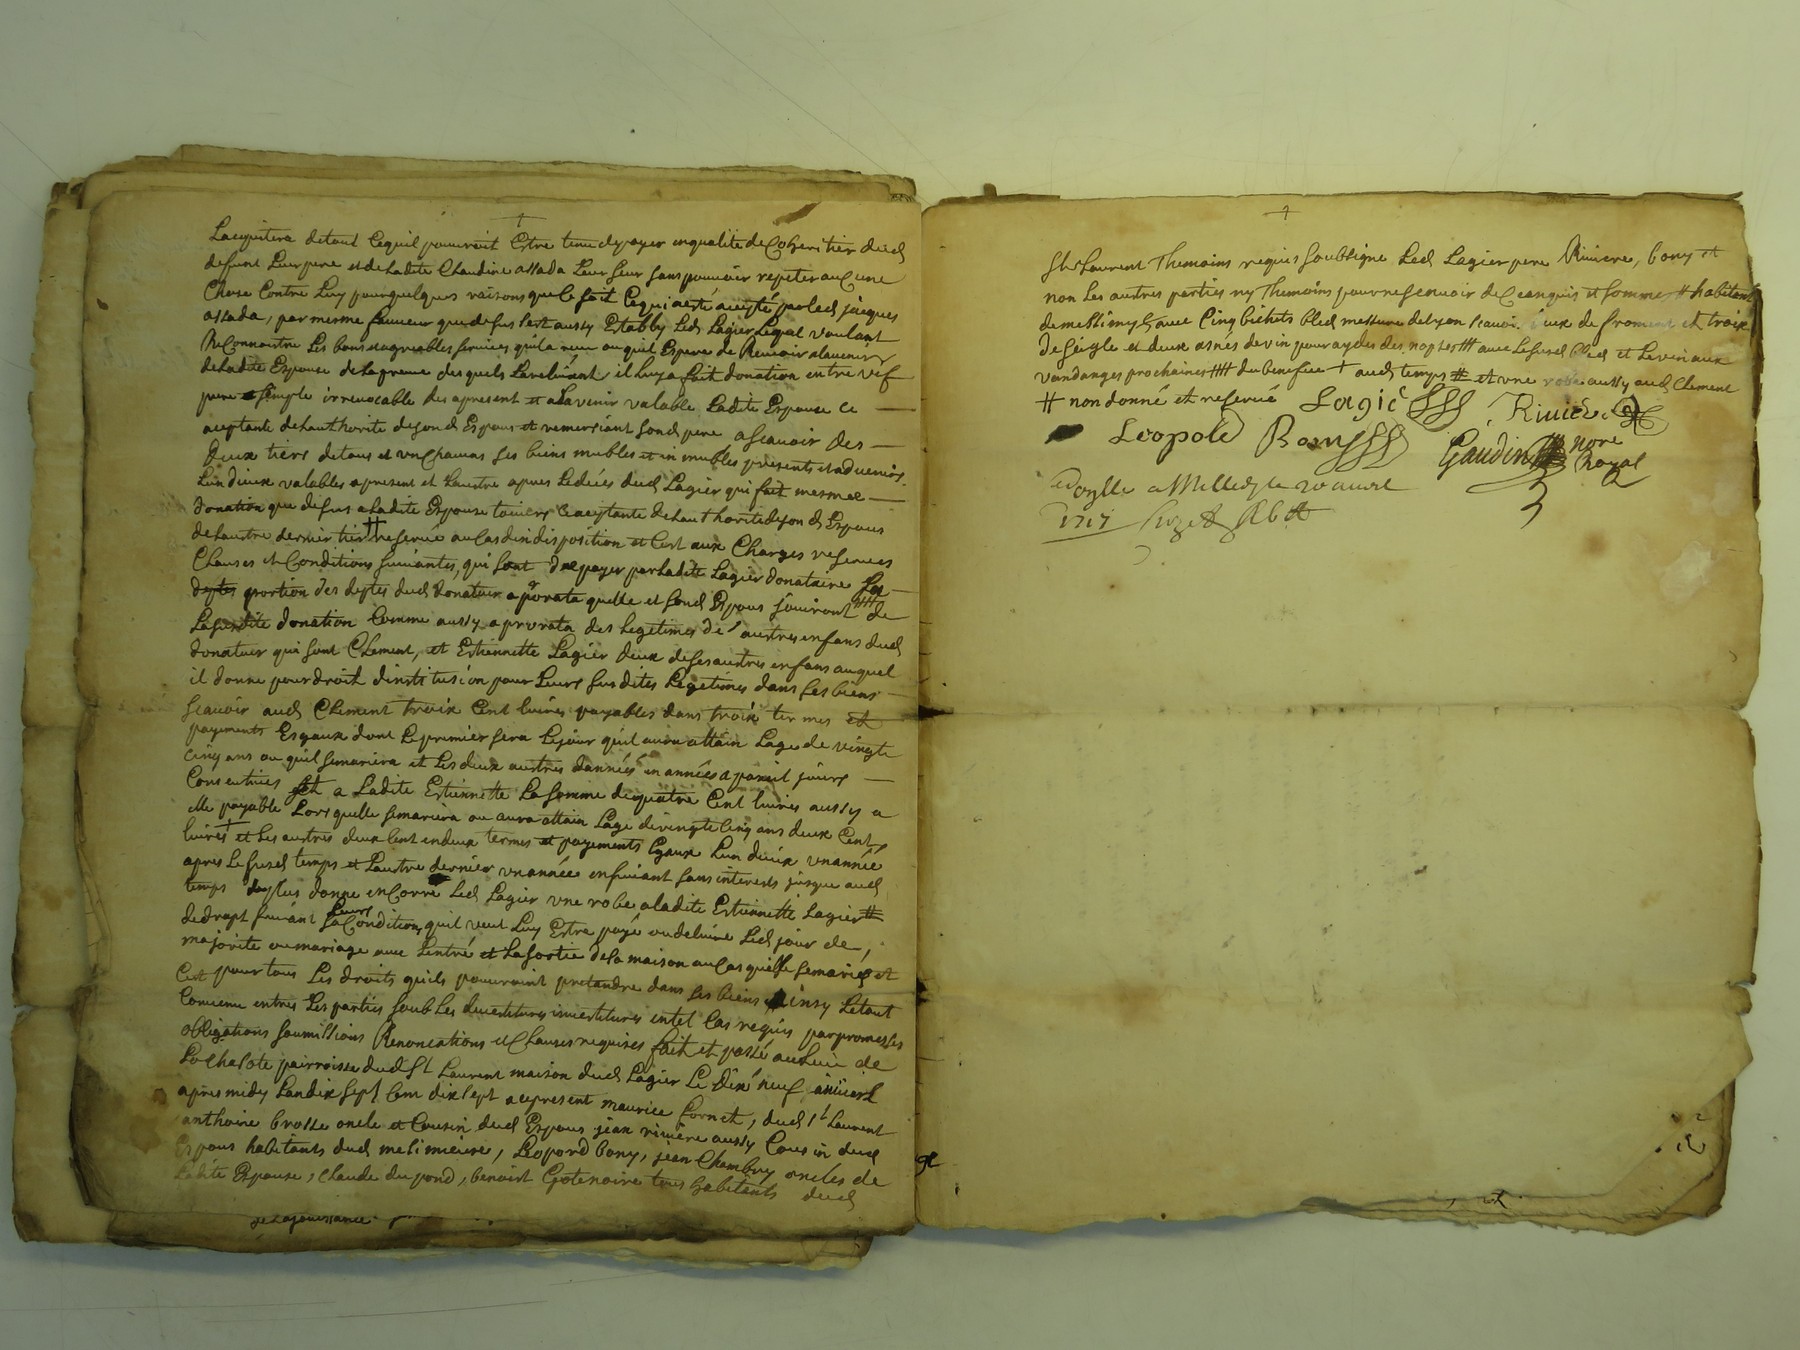 Lacquitera detout cequil pourroit Estre tenu depayer enqualite de Coheritier dud
defunt Leurpere et de Ladite Claudine assada Leur seur sans pouvoir repeter aucune
Chose Contre Luy pour quelques raisons que ce soit Ce qui a esté acepté par led jacques
assada, par mesme faveur que desus sest aussy Estably Led Lagier Lequel voulant
Reconnoistre Les bons et agreables services quil a receu ou quil Espere de Recevoir alavenir
de Ladite Espouse de la preuve desquels La relevant il Luy a fait donation entre vif
pure simple irrevocable des apresent et a Lavenir valable Ladite Espouse ce
aceptante de Lauthorite de son d Espous et remersiant sond pere ascavoir des
deux tiers de tous et un Chacuns ses biens mubles et inmubles presents et advenirs
Lun dieux valables apresent et Laustre apres Ledeces dud Lagier qui fait mesme
donation que desus a Ladite Espouse tousiours aceptante de Lauthorite de son d Espous
de Laustre dernier tier reservé au Cas dindisposition et Cest aux Charges reserves
Clauses et Conditions suivantes, qui sont de payer par Ladite Lagier donataire La
portion des deptes dud donateur a porata quelle et sond Espous jouiront de
La susdite donation Comme aussy a prorata des Legetimes de austres enfans dud
donateur qui sont Clement, et Estiennette Lagier deux de ses austres enfans auquel
il donne pour droit dinstitusion pour Leurs susdites Legetimes dans ses biens
scavoir aud Clement troix Cent livres payables dans troix termes et
payements Esgaux dont Le premier sera Lejour quil aura attain Lage de vingte
cinq ans ou quil semariera et Les deux austres dannées en années a pareil jours
Consecutives et a Ladite Estiennette La somme de quatre Cent livres aussy a
elle payable Lors quelle semariera ou aura attain Lage de vingte Cinq ans deux Cent
livres et Les austres deux Cent en deux termes et payements Egaux Lun dieux un année
apres Le susd temps et Laustre dernier un année ensuivant sans interests jusque aud
temps de plus donne enCorre Led Lagier une robe a ladite Estiennette Lagier #
de drapt suivant Leurs Condition, quil veut Luy Estre payé ou delivré Led jour de
majorite ou mariage avec Lentré et La sortie de sa maison au Cas quelle se marie et
Cest pour tous Les droits quils pourroint pretandre dans ses biens ainsy Letout
Convenu entres Les parties soub Les devestitures investitures en tel Cas requis par promesses
obligations soumissions Renonciations et Clauses requises fait et passé au Lieu de
La Chalote pairroisse dud St Laurent maison dud Lagier Le dix neuf
apres midy Landix sept Cent dix sept a ce present maurice Cornet, dud St Laurent
anthoine brosse oncle et Cousin dud Espous jean rivière aussy Cousin dud
Espous habitants dud melimieux, Leopord bony, jean Chambry oncles de
Ladite Espouse, Claude dupond, benoist tous habitants dud
de La jouissance
St Laurent Themoins requis soubsigne Led Lagier pere Riviere, bony et
non Les autres parties ny Themoins pour ne scavoir de Ce enquis et somme # habitant
de messimy & avec Cinq bichets bled messure de Lyon scavoir deux de froment et troix
de seigle et deux asnés de vin pour aydes des noptes ### avec Le susd bled et Le vin aux
vandanges prochaines #### du benefice + aud temps # et une robe aussy aud Clement
# non donné et reservé Lagié Rivière
Leopold Bony Gaudin nore Royal
1717